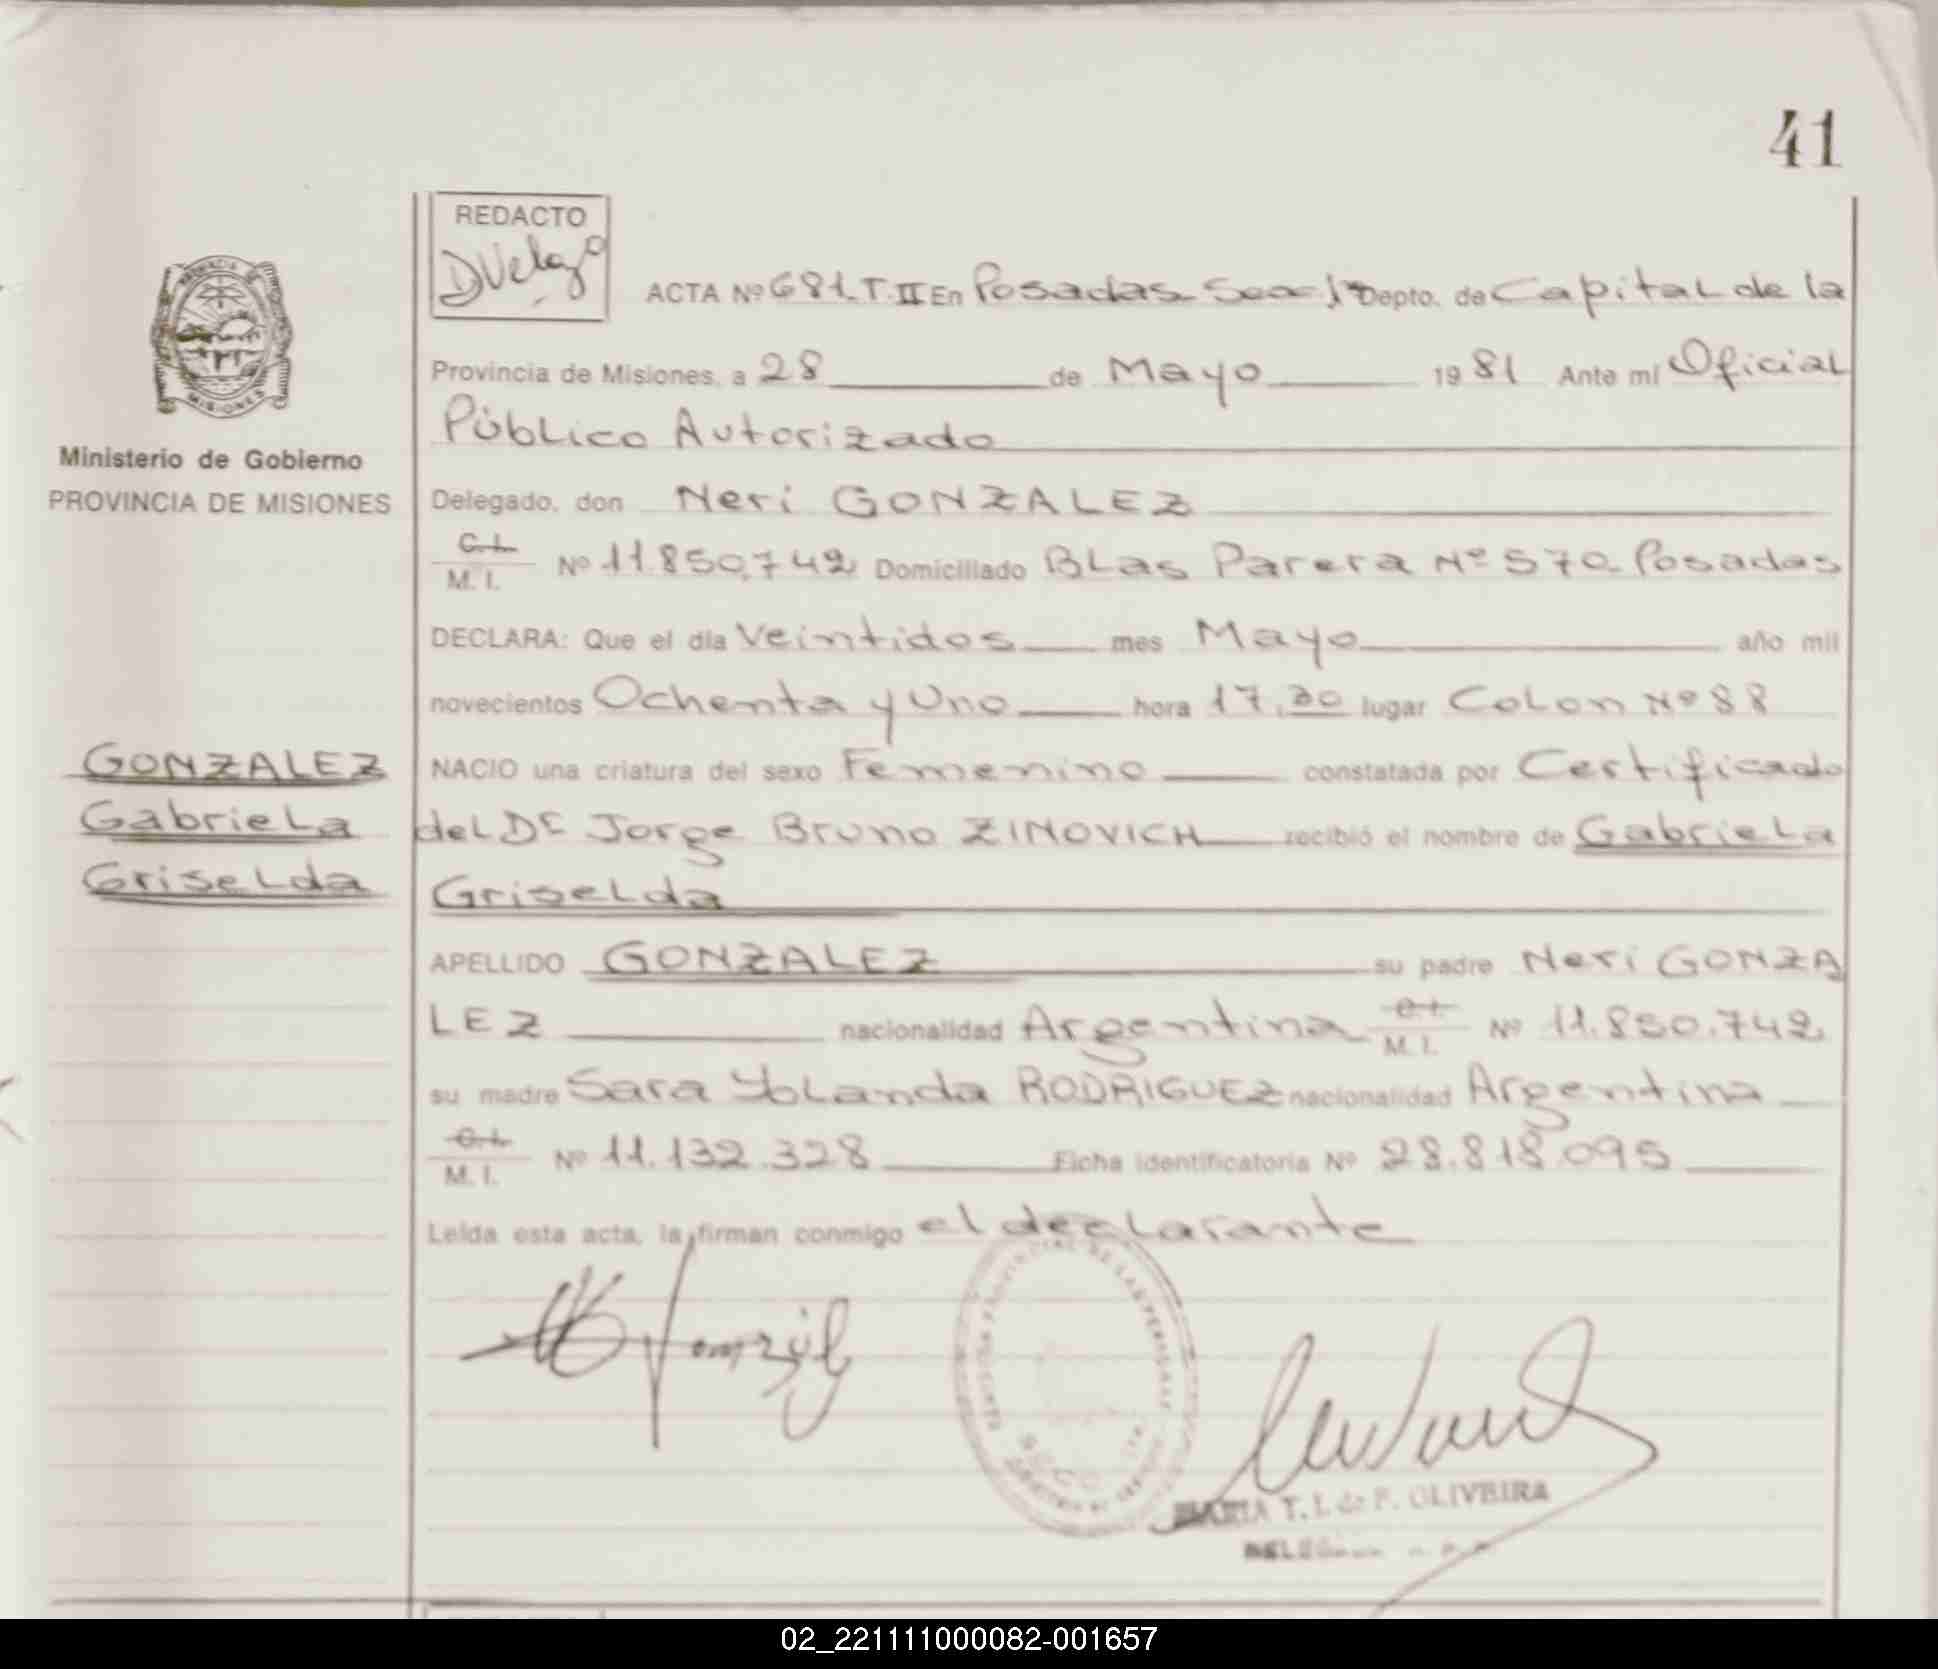 41
REDACTO
DVelazº
ACTA Nº 681 T. II En Posadas Secc 1º Depto. de Capital de la
Provincia de Misiones, a 28 de Mayo 1981 Ante mí Oficial
Público Autorizado
Delegado, don Neri GONZALEZ
C.I. M. I. Nº 11.850.742 Domiciliado BLas Parera Nº 570 Posadas
DECLARA: Que el día Veintidos mes Mayo año mil
novecientos Ochenta y Uno hora 17,30 lugar Colon Nº 88
NACIO una criatura del sexo Femenino constatada por Certificado
del Dr Jorge Bruno ZINOVICH recibió el nombre de Gabriela
Griselda
APELLIDO GONZALEZ su padre Neri GONZA
LEZ nacionalidad Argentina C.I. M. I. Nº 11.850.742
su madre Sara Yolanda RODRIGUEZ nacionalidad Argentina
C.I. M. I. Nº 11.132.328 Ficha identificatoria Nº 28.818.095
Leída esta acta, la firman conmigo el declarante
MARIA T. I. de P. OLIVEIRA
PROVINCIA DE
MISIONES
Ministerio de Gobierno
PROVINCIA DE MISIONES
GONZALEZ
Gabriela
Griselda
02_221111000082-001657